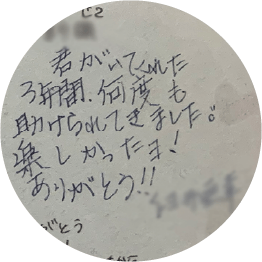 君がいてくれた
3年間、何度も
助けられてきました。
楽しかったよ!
ありがとう!!
がとう